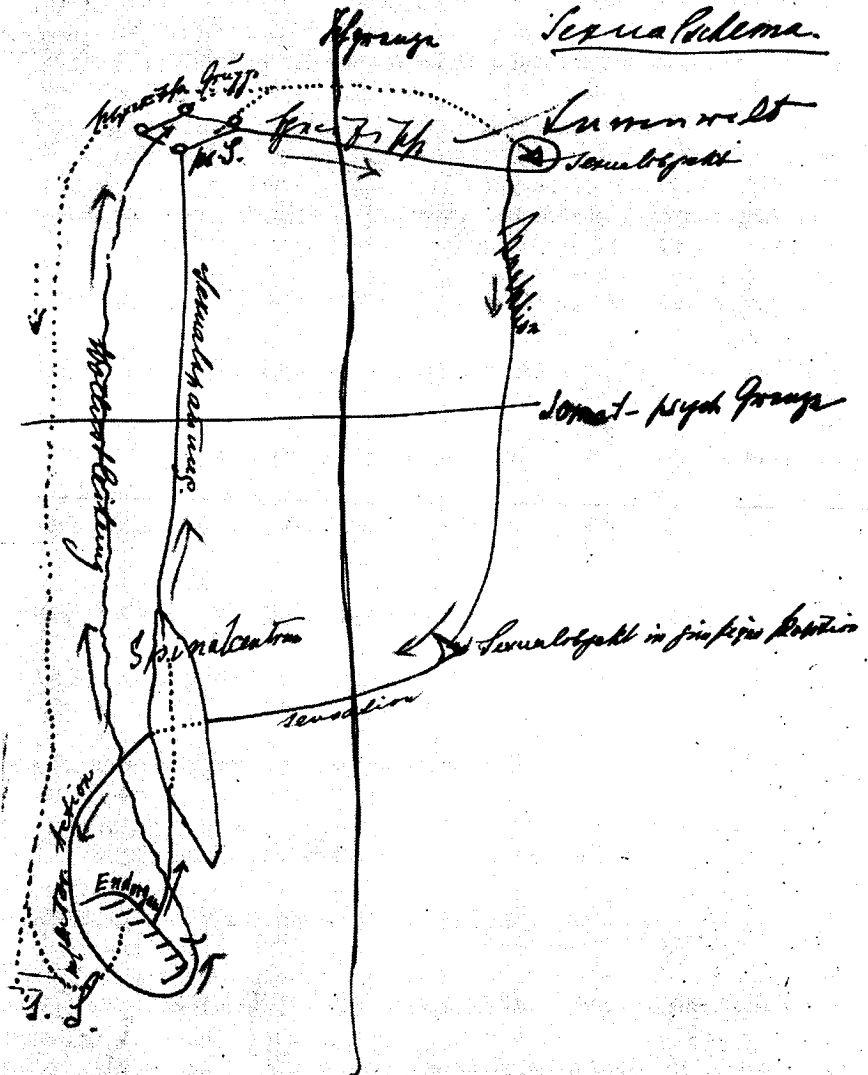 Sexualschema.
Ichgrenze
psych. Gruppe
ps. S.
Aussenwelt
Sexualobjekt
Sexualspannung.
Wollustleitung
Somat-psych Grenze
Spinalcentrum
Sexualobjekt in günstiger Position
sensation
reflector Action
Endorgan